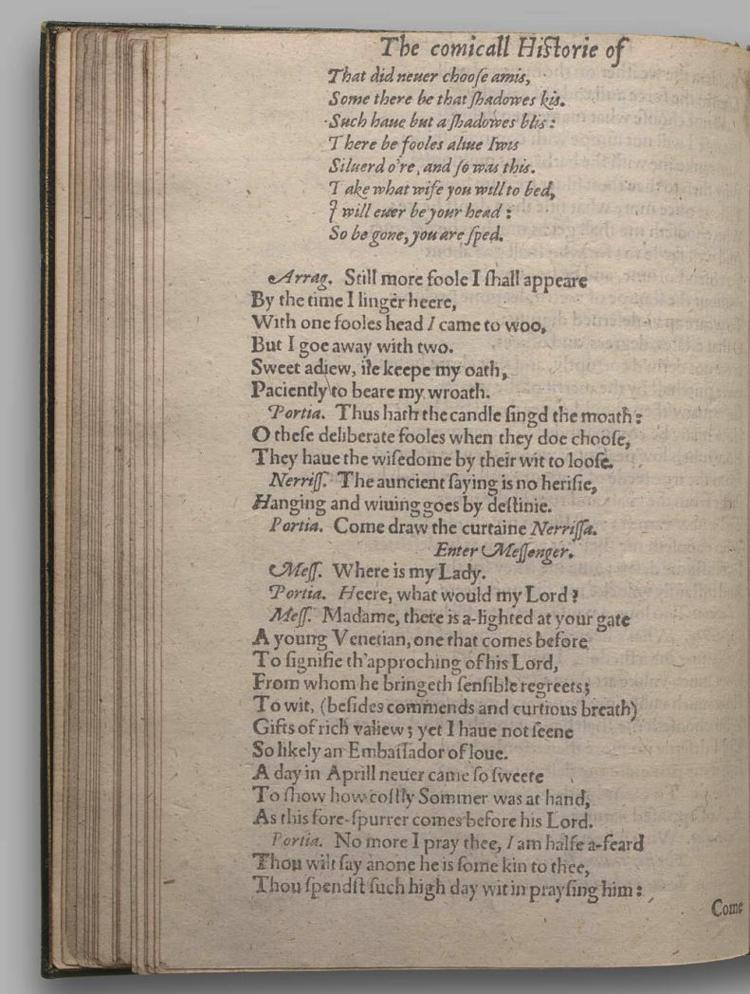 The comicall Historie of
That did neuer chooſe amis,
Some there be that ſhadowes kis.
Such haue but a ſhadowes blis :
There be fooles aliue Iwis
Siluerd o're, and ſo was this.
Take what wife you will to bed,
I will euer be your head :
So be gone, you are ſped.
Arrag. Still more foole I ſhall appeare
By the time I linger heere,
With one fooles head I came to woo,
But I goe away with two.
Sweet adiew, ile keepe my oath,
Paciently to beare my wroath.
Portia. Thus hath the candle ſingd the moath :
O theſe deliberate fooles when they doe chooſe,
They haue the wiſedome by their wit to looſe.
Nerriſſ. The auncient ſaying is no heriſie,
Hanging and wiuing goes by deſtinie.
Portia. Come draw the curtaine Nerriſſa.
Enter Meſſenger.
Meſſ. Where is my Lady.
Portia. Heere, what would my Lord ?
Meſſ. Madame, there is a-lighted at your gate
A young Venetian, one that comes before
To ſignifie th'approching of his Lord,
From whom he bringeth ſenſible regreets ;
To wit, (beſides commends and curtious breath)
Gifts of rich valiew ; yet I haue not ſeene
So likely an Embaſſador of loue.
A day in Aprill neuer came ſo ſweete
To ſhow how coſtly Sommer was at hand,
As this fore-ſpurrer comes before his Lord.
Portia. No more I pray thee, I am halfe a-feard
Thou wilt ſay anone he is ſome kin to thee,
Thou ſpendſt ſuch high day wit in prayſing him :
Come